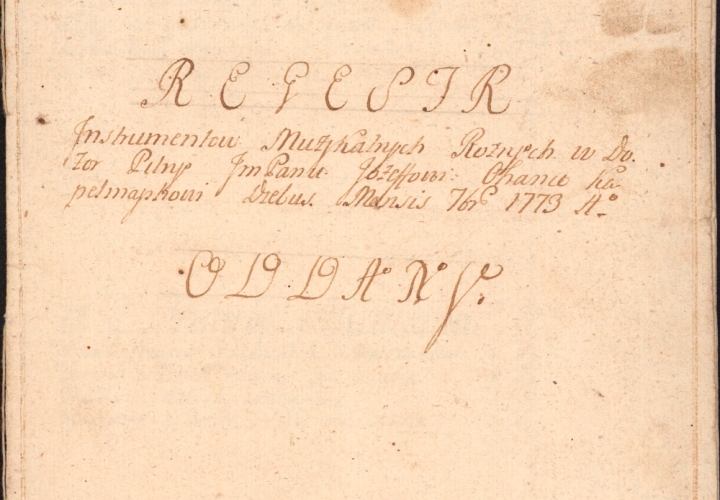 REGESTR
Instrumentow Muzykalnych Roznych w Do.
zor Pilny Jm Panu Jozeffowi Ka
pelmaystrowi Diebus Mensis 7br 1773 Ao
ODDANY.